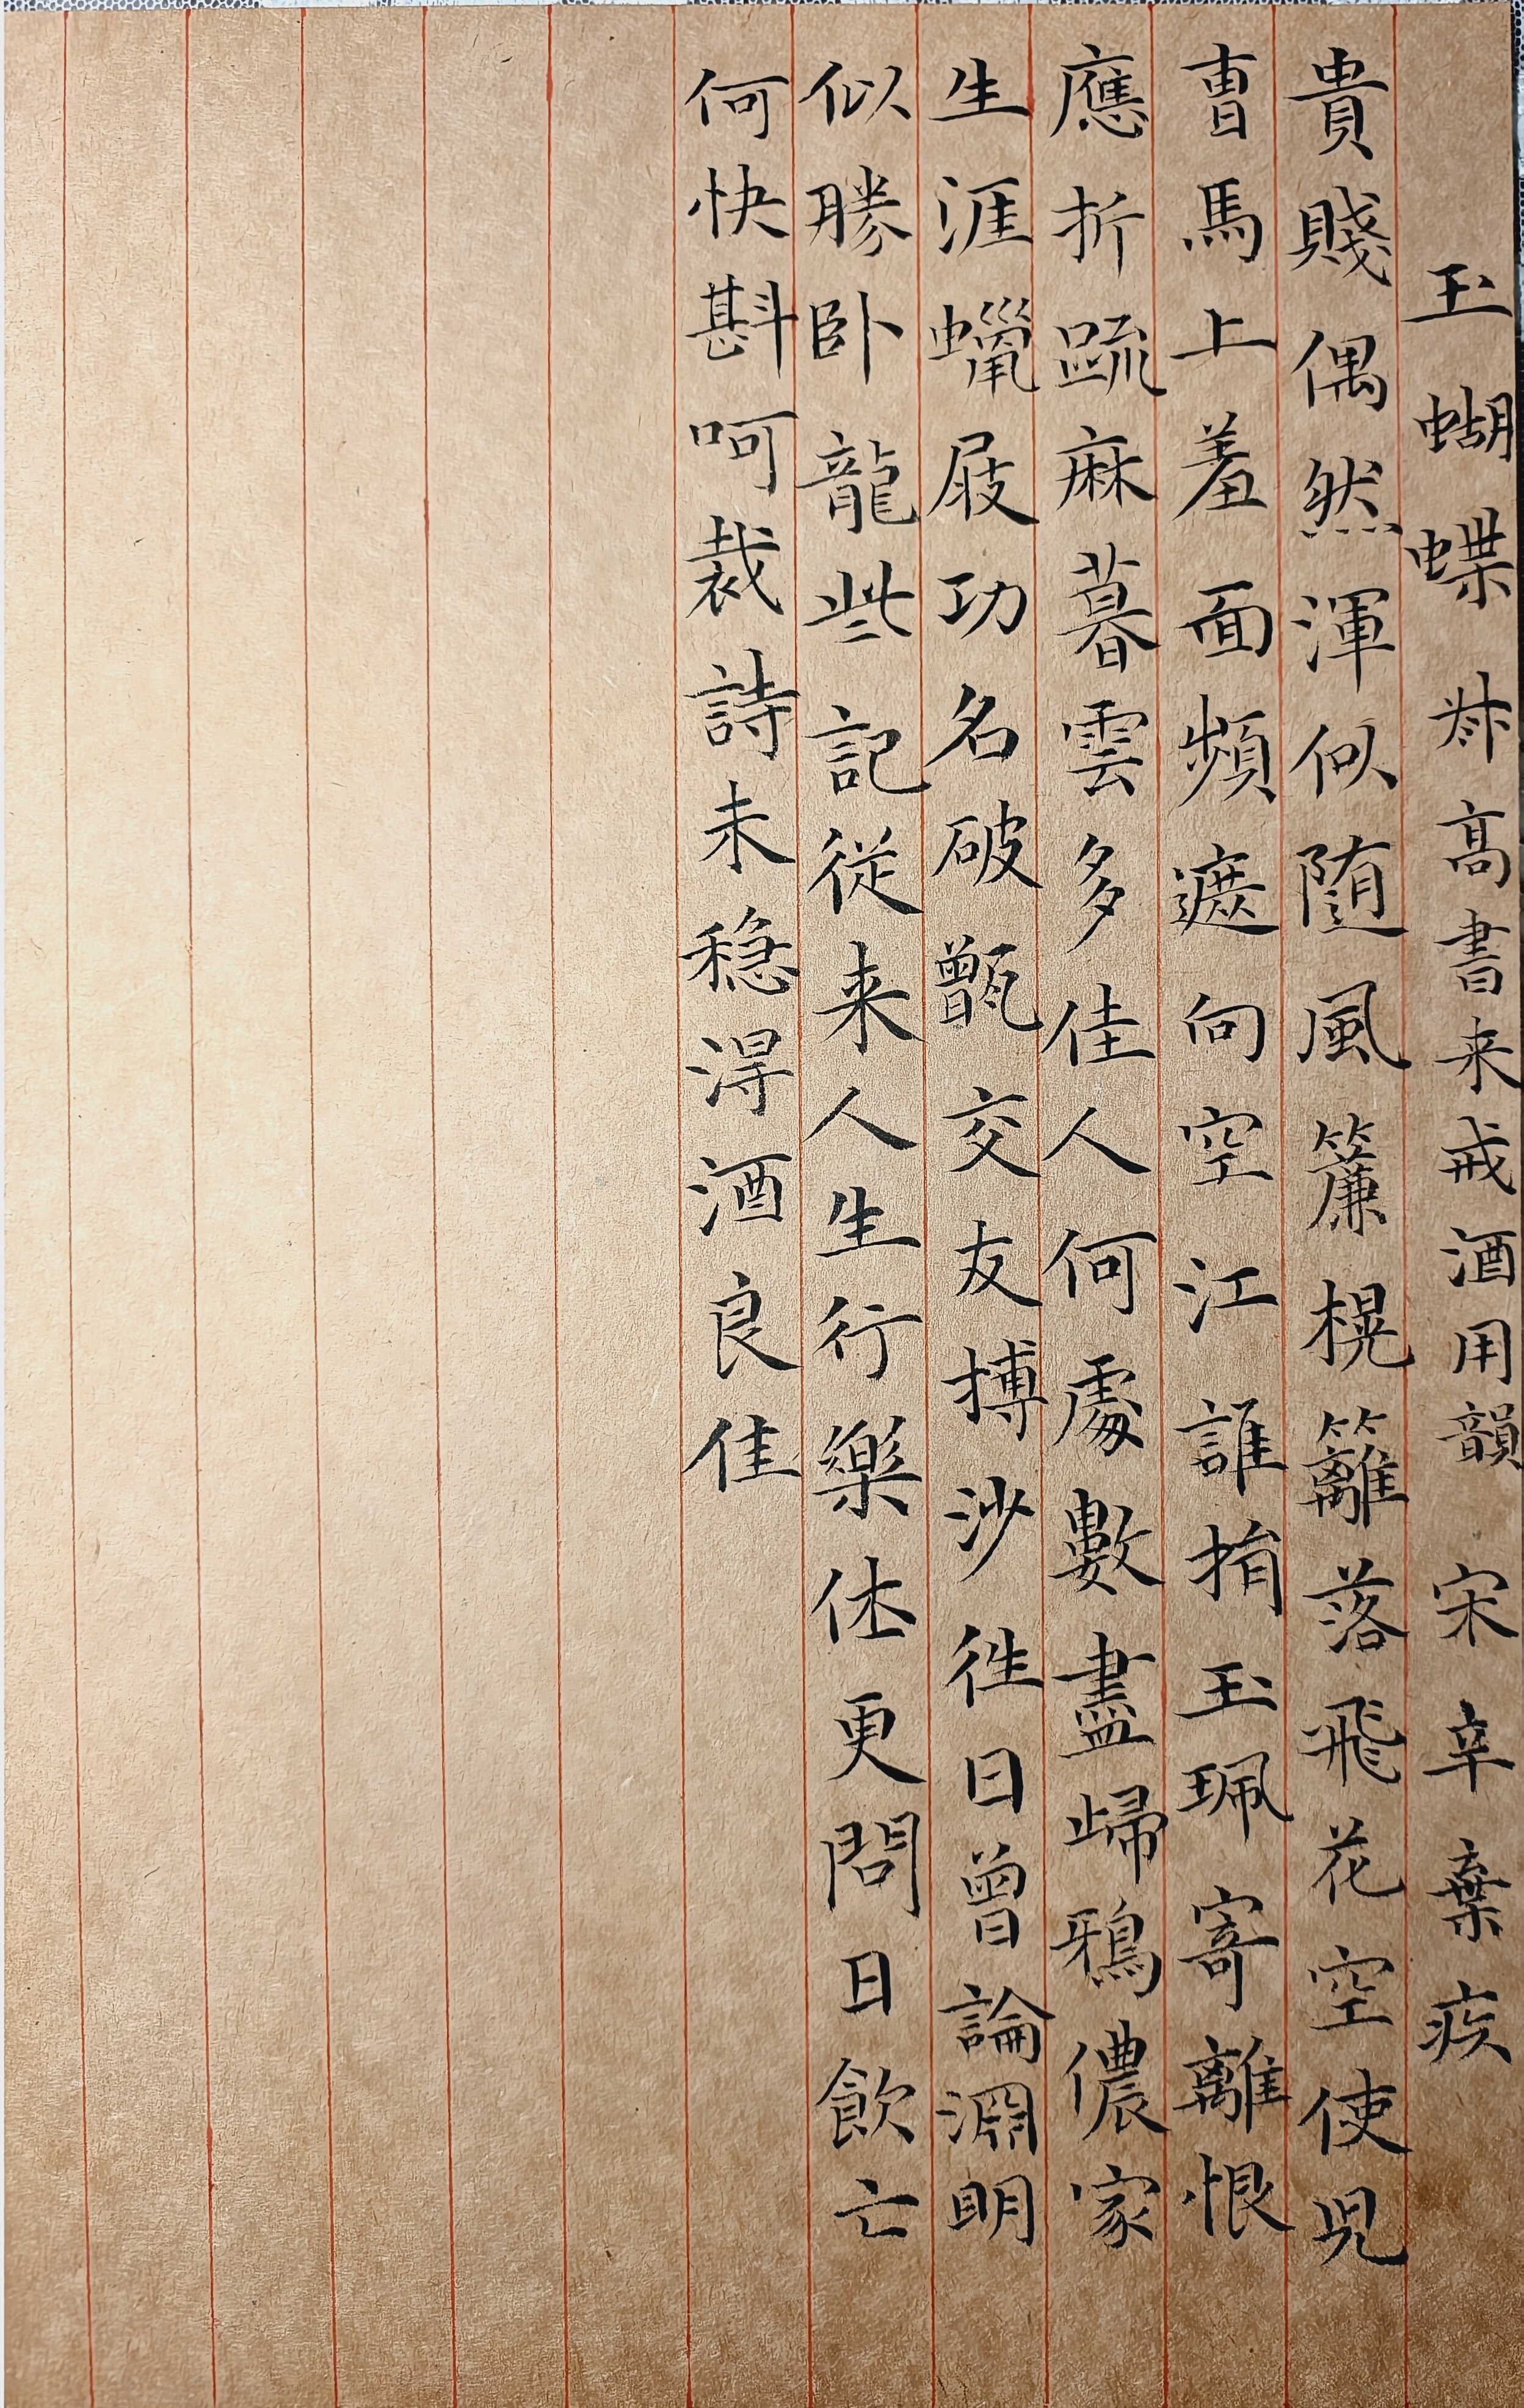 玉蝴蝶 叔高書来戒酒用韻 宋 辛棄疾
貴賤偶然渾似随風簾榥籬落飛花空使兒
曺馬上羞面頻遮向空江誰捐玉珮寄離恨
應折疏麻暮雲多佳人何處數盡歸鴉儂家
生涯蠟屐功名破甑交友摶沙徃日曾論淵明
似勝卧龍些記從来人生行樂休更問日飲亡
何快斟呵裁詩未穏淂酒良佳